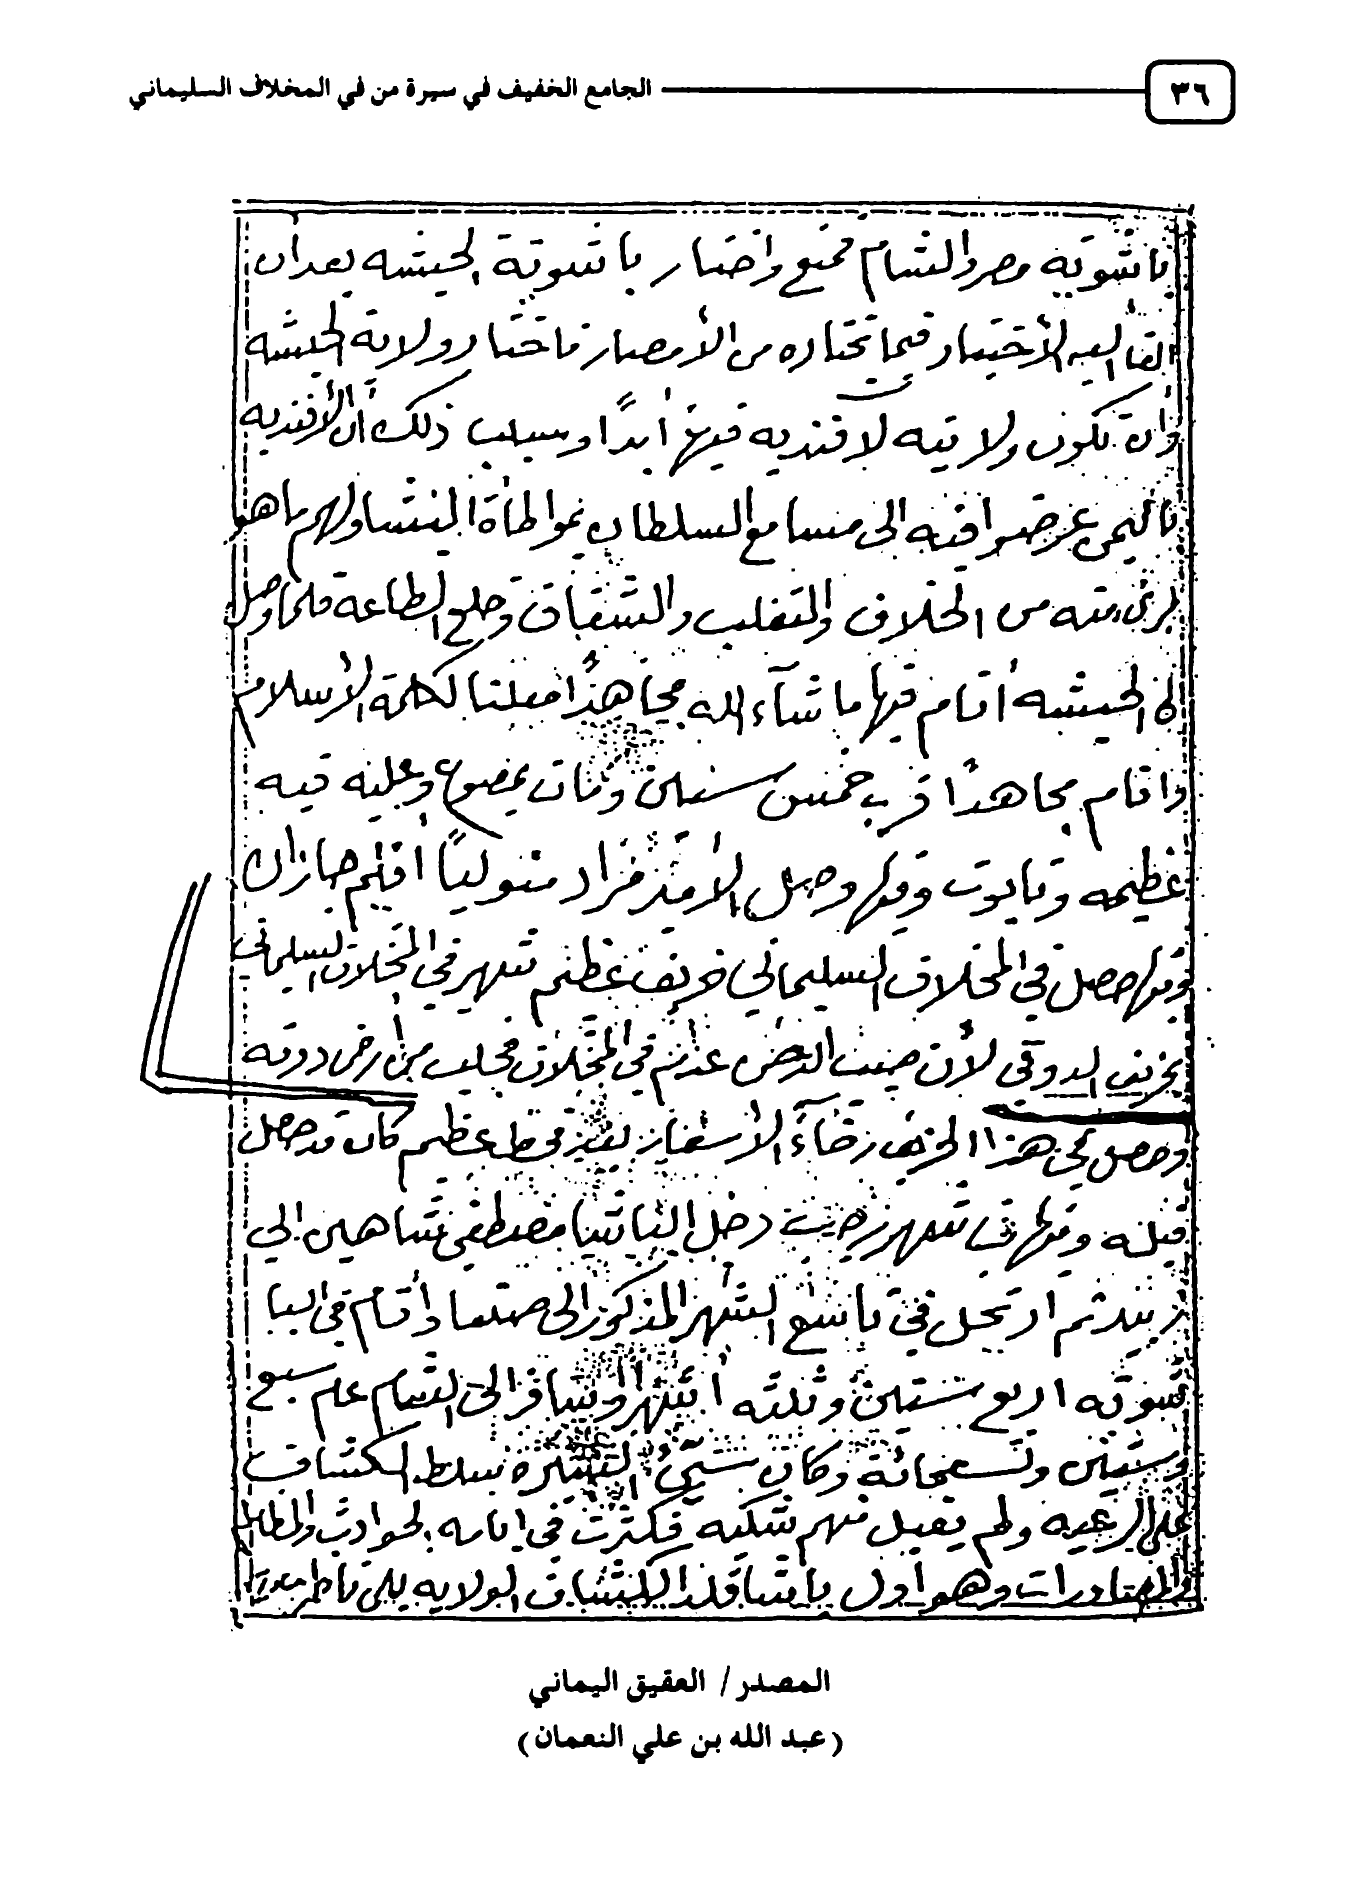 ٣٦
الجامع الخفيف في سيرة من في المخلاف السليماني
باشوته مصر والشام فمنع واختار باشوتة الحبشه بعد ان
القا اليه الأختيار فيما يختاره من الأمصار فاختار ولاية الحبشه
وان تكون ولايته لا فنديه فيها أبدًا وسبب ذلك أن الأفنديه
باليمن عرضوا فيه الى مسامع السلطان بمواطأة الينشاولهم ما هو
برئ منه من الخلاف والتغلب والشقاق وخلع الطاعة فلما وصل
الى الحبشه أقام فيها ما شآء الله مجاهدًا معلنا لكلمة الأسلام
واقام مجاهدًا قرب خمس سنين ومات بمصوع وعليه قبه
عظيمه وتابوت وفيها وصل الأمير مراد متوليًا أقليم جازان
وفيها حصل في المخلاف السليماني خريف عظيم شهر في المخلاف السليماني
بخريف الدوقي لأن صيب الدخن عدم في المخلاف فجلب من أرض دوقه
وحصل في هذا الخريف رخاء الأسعار بعد قحط عظيم كان قد حصل
قبله وفيها في شهر رجب دخل الباشا مصطفى شاهين الى
زبيد ثم ارتحل في تاسع الشهر المذكور الى صنعا وأقام في البا
شوته اربع سنين وثلثه أشهر وسافر الى الشام عام سبع
وستين وتسعمائة وكان سيئ السيره سلط الكشاف
على الرعيه ولم يقبل فيهم شكيه فكثرت في ايامه الحوادث والمظالم
والمصادرات وهو أول باشا قلد الكشاف الولايه
المصدر / العقيق اليماني
(عبد الله بن علي النعمان)